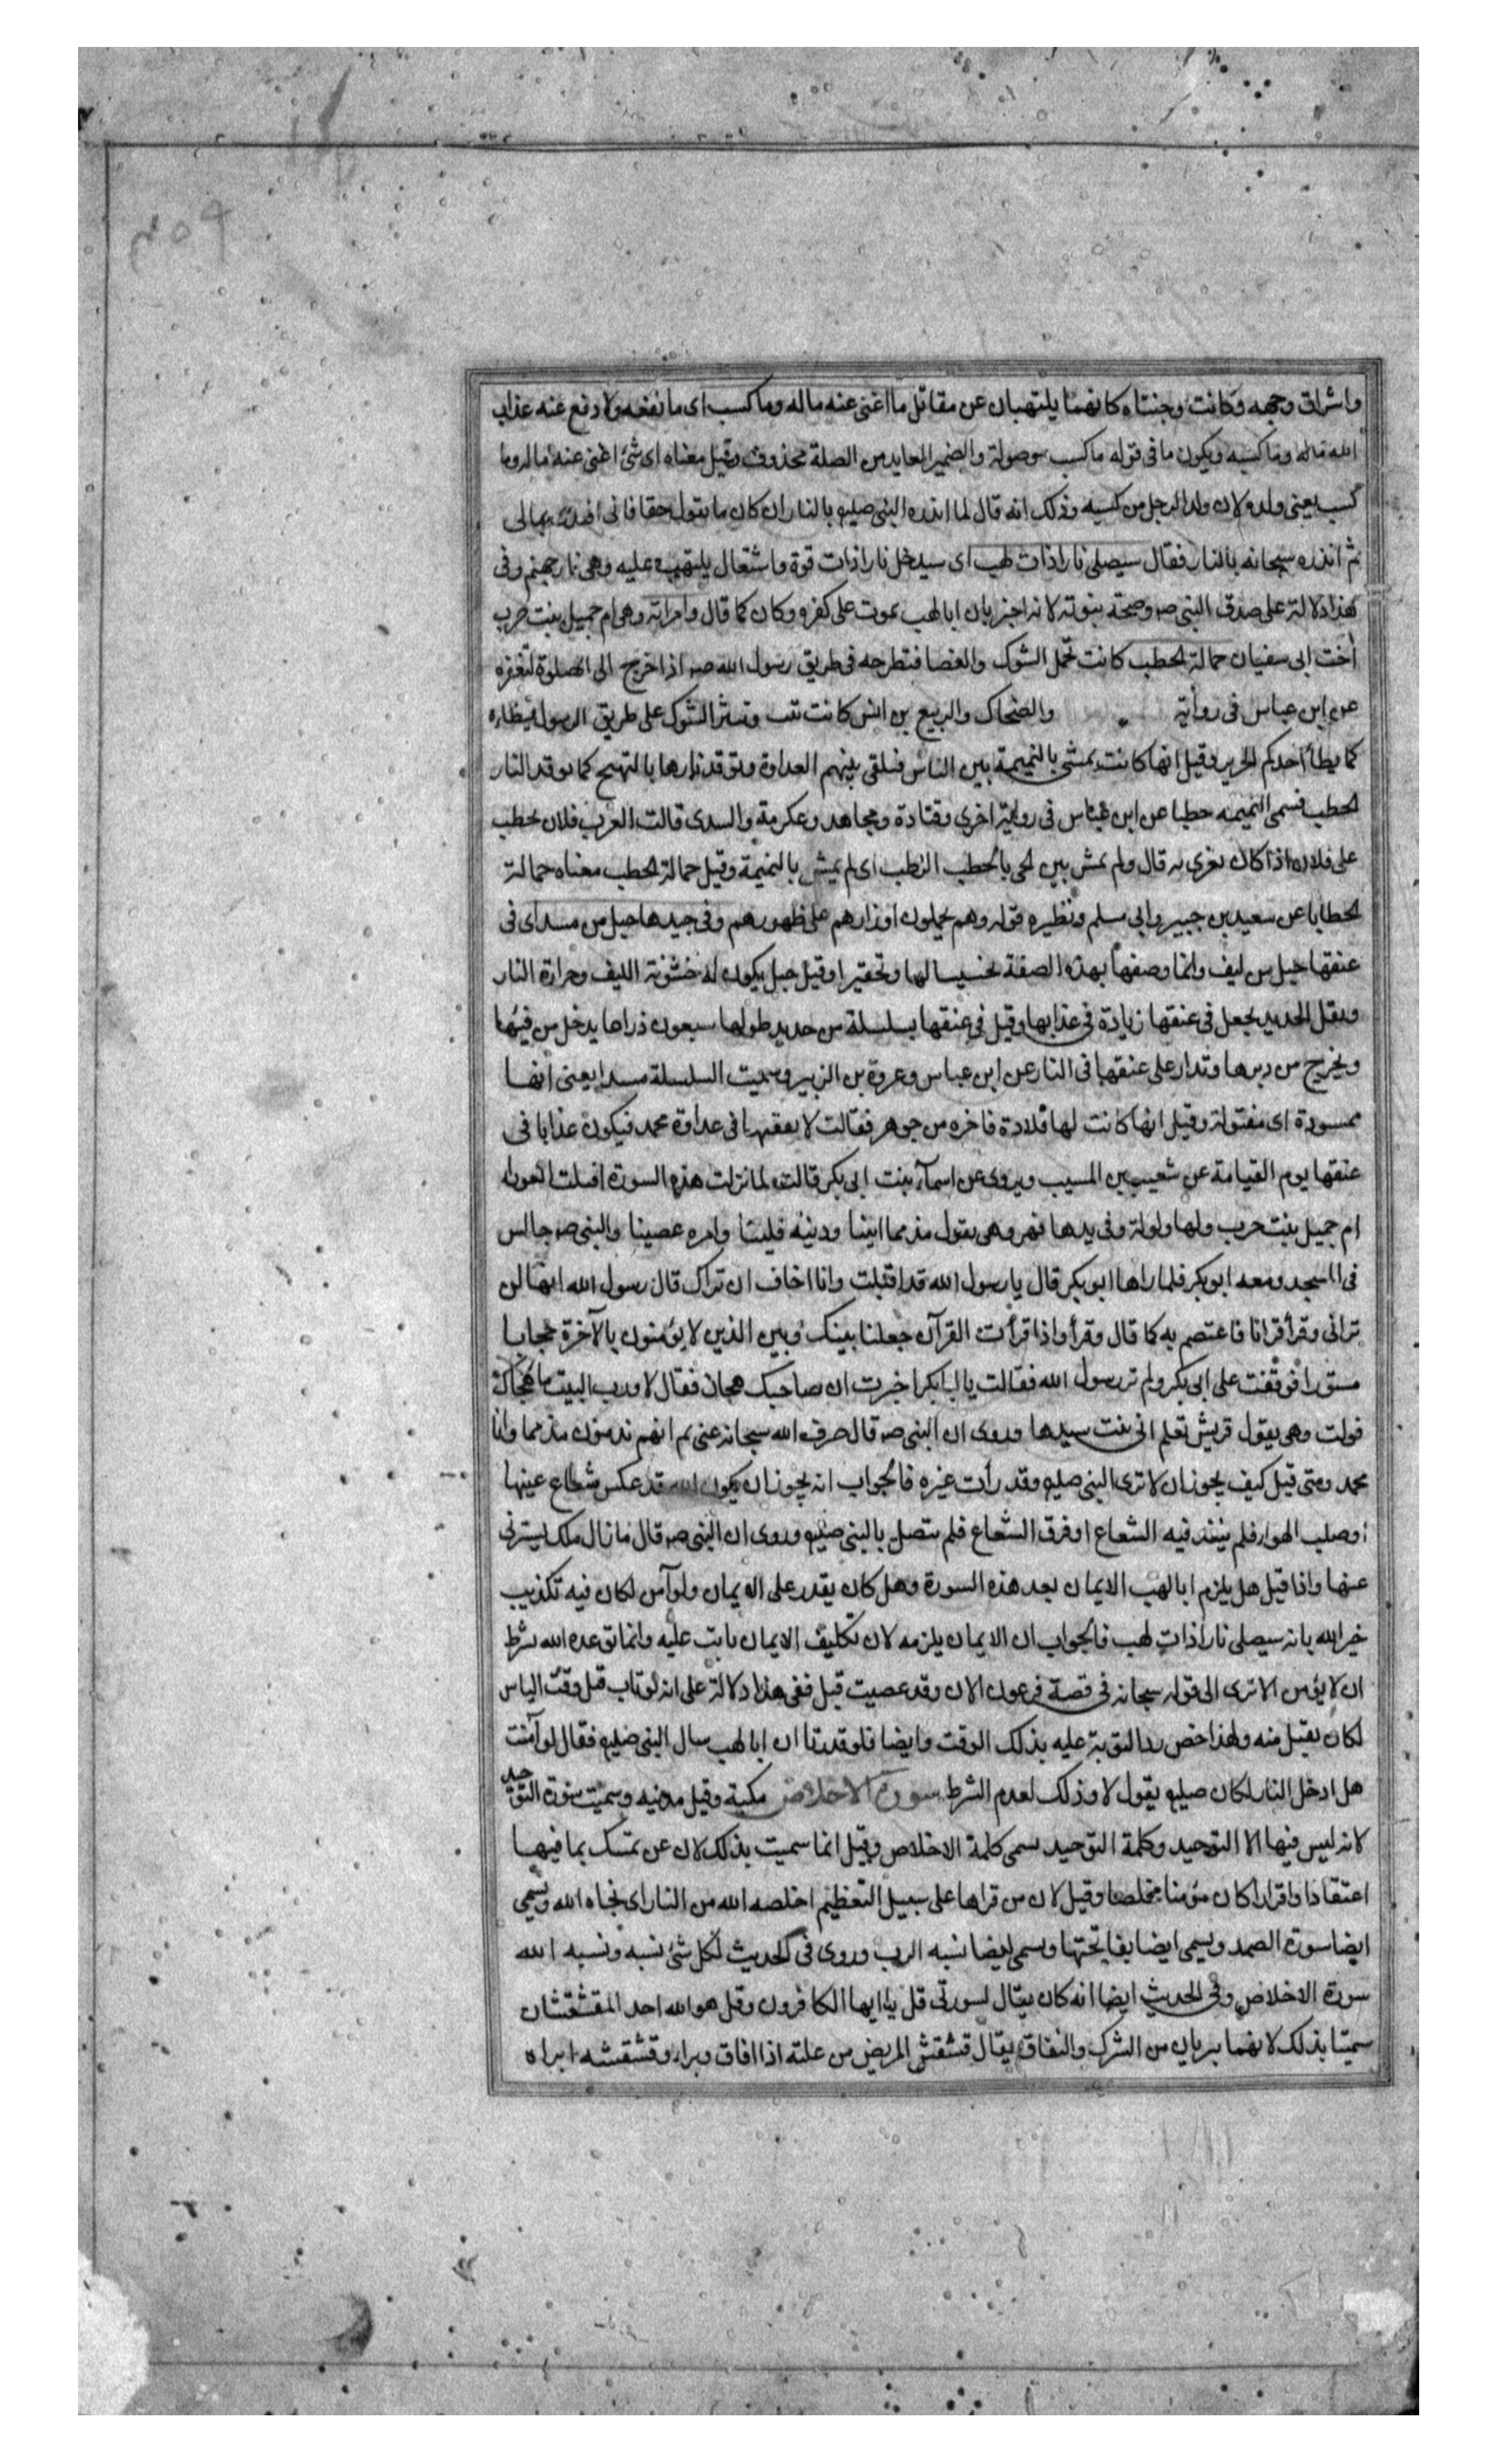 واشراق وجهه وكانت وجنتاه كانهما يلتهبان عن مقاتل ما اغنى عنه ماله وما كسب اى ما نفعه ولا دفع عنه عذاب
الله ماله وما كسبه ويكون ما فى قوله ما كسب موصولة والضمير العايد من الصلة محذوف وقيل معناه اى شئ اغنى عنه ماله وما
كسب يعنى ولده لان ولد الرجل من كسبه وذلك انه قال لما انذره النبى صليو بالنار ان كان ما يقول حقا فانى افتدى بمالى
ثم انذره سبحانه بالنار فقال سيصلى نارا ذات لهب اى سيدخل نارا ذات قوة واشتعال يلتهب عليه وهى نار جهنم وفى
هذا دلالة على صدق النبى صہ وصحة نبوته لانه اخبر بان ابا لهب يموت على كفره وكان كما قال وامراته وهى ام جميل بنت حرب
أخت ابى سفيان حمالة الحطب كانت تحمل الشوك والغضا فتطرحه فى طريق رسول الله صہ اذا خرج الى الصلوة لتعقره
عن ابن عباس فى رواية والضحاك والربيع بن انس كانت تبث وتنثر الشوك على طريق الرسول فيطاه
كما يطأ احدكم الحرير وقيل انها كانت تمشى بالنميمة بين الناس فتلقى بينهم العداوة وتوقد نارها بالتهيج كما توقد النار
الحطب فسمى النميمه حطبا عن ابن عباس فى رواية اخرى وقتادة ومجاهد وعكرمة والسدى قالت العرب فلان يحطب
على فلان اذا كان يغرى به قال ولم يمش بين الحى بالحطب الرطب اى لم يمش بالنميمة وقيل حمالة الحطب معناه حمالة
الخطايا عن سعيد بن جبير وابى مسلم ونظيره قوله وهم يحملون اوزارهم على ظهورهم وفى جيدها حبل من مسد اى فى
عنقها حبل من ليف وانما وصفها بهذه الصفة تخسيسا لها وتحقيرا وقيل حبل يكون له خشونة الليف وحرارة النار
وثقل الحديد يجعل فى عنقها زيادة فى عذابها وقيل فى عنقها سلسلة من حديد طولها سبعون ذراعا يدخل من فيها
ويخرج من دبرها وتدار على عنقها فى النار عن ابن عباس وعروة بن الزبير وسميت السلسلة مسدا يعنى انها
ممسودة اى مفتولة وقيل انها كانت لها قلادة فاخره من جوهر فقالت لا نفقنها فى عداوة محمد فيكون عذابا فى
عنقها يوم القيامة عن شعيب بن المسيب ويروى عن اسمآء بنت ابى بكر قالت لما نزلت هذه السورة اقبلت العوراء
ام جميل بنت حرب ولها ولولة وفى يدها فهر وهى يقول مذمما ابينا ودينه قلينا وامره عصينا والنبى صہ جالس
فى المسجد ومعه ابو بكر فلما راها ابو بكر قال يا رسول الله قد اقبلت وانا اخاف ان تراك قال رسول الله انها لن
ترانى وقرأ قرانا فاعتصم به كما قال وقرأ واذا قرأت القرآن جعلنا بينك وبين الذين لا يؤمنون بالآخرة حجابا
مستورا فوقفت على ابى بكر ولم تر رسول الله فقالت يا ابا بكر اخبرت ان صاحبك هجانى فقال لا ورب البيت ما هجاك
فولت وهى يقول قريش تعلم انى بنت سيدها وروى ان النبى صہ قال صرف الله سبحانه عنى ثم انهم يذمون مذمما وانا
محمد ومتى قيل كيف يجوز ان لا ترى النبى صليو وقد رأت غيره فالجواب انه يجوز ان يكون الله قد عكس شعاع عينها
او صلب الهواء فلم ينفذ فيه الشعاع او فرق الشعاع فلم يتصل بالنبى صليو وروى ان النبى صہ قال ما زال ملك يسترنى
عنها واذا قيل هل يلزم ابا لهب الايمان بعد هذه السورة وهل كان يقدر على الايمان ولو آمن لكان فيه تكذيب
خبر الله بانه سيصلى نارا ذات لهب فالجواب ان الايمان يلزمه لان تكليف الايمان ثابت عليه وانما توعده الله بشرط
ان لا يؤمن الا ترى الى قوله سبحانه فى قصة فرعون الان وقد عصيت قبل ففى هذا دلالة على انه لو تاب قبل وقت الياس
لكان يقبل منه ولهذا خص رد التوبة عليه بذلك الوقت وايضا فلو قدرنا ان ابا لهب سال النبى صليو فقال لو آمنت
هل ادخل النار لكان صليو يقول لا وذلك لعدم الشرط سورة الاخلاص مكية وقيل مدنيه وسميت سورة التوحيد
لانه ليس فيها الا التوحيد وكلمة التوحيد تسمى كلمة الاخلاص وقيل انما سميت بذلك لان عن تمسك بما فيها
اعتقادا واقرارا كان مؤمنا مخلصا وقيل لان من قراها على سبيل التعظيم اخلصه الله من النار اى نجاه الله ويسمى
ايضا سورة الصمد ويسمى ايضا بفاتحتها وتسمى ايضا نسبه الرب وروى فى الحديث لكل شئ نسبه ونسبه الله
سورة الاخلاص وفى الحديث ايضا انه كان يقال لسورتى قل يا ايها الكافرون وقل هو الله احد المقشقشتان
سميتا بذلك لانهما يبريان من الشرك والنفاق يقال قشقش المريض من علته اذا افاق وبراء وقشقشه ابراه